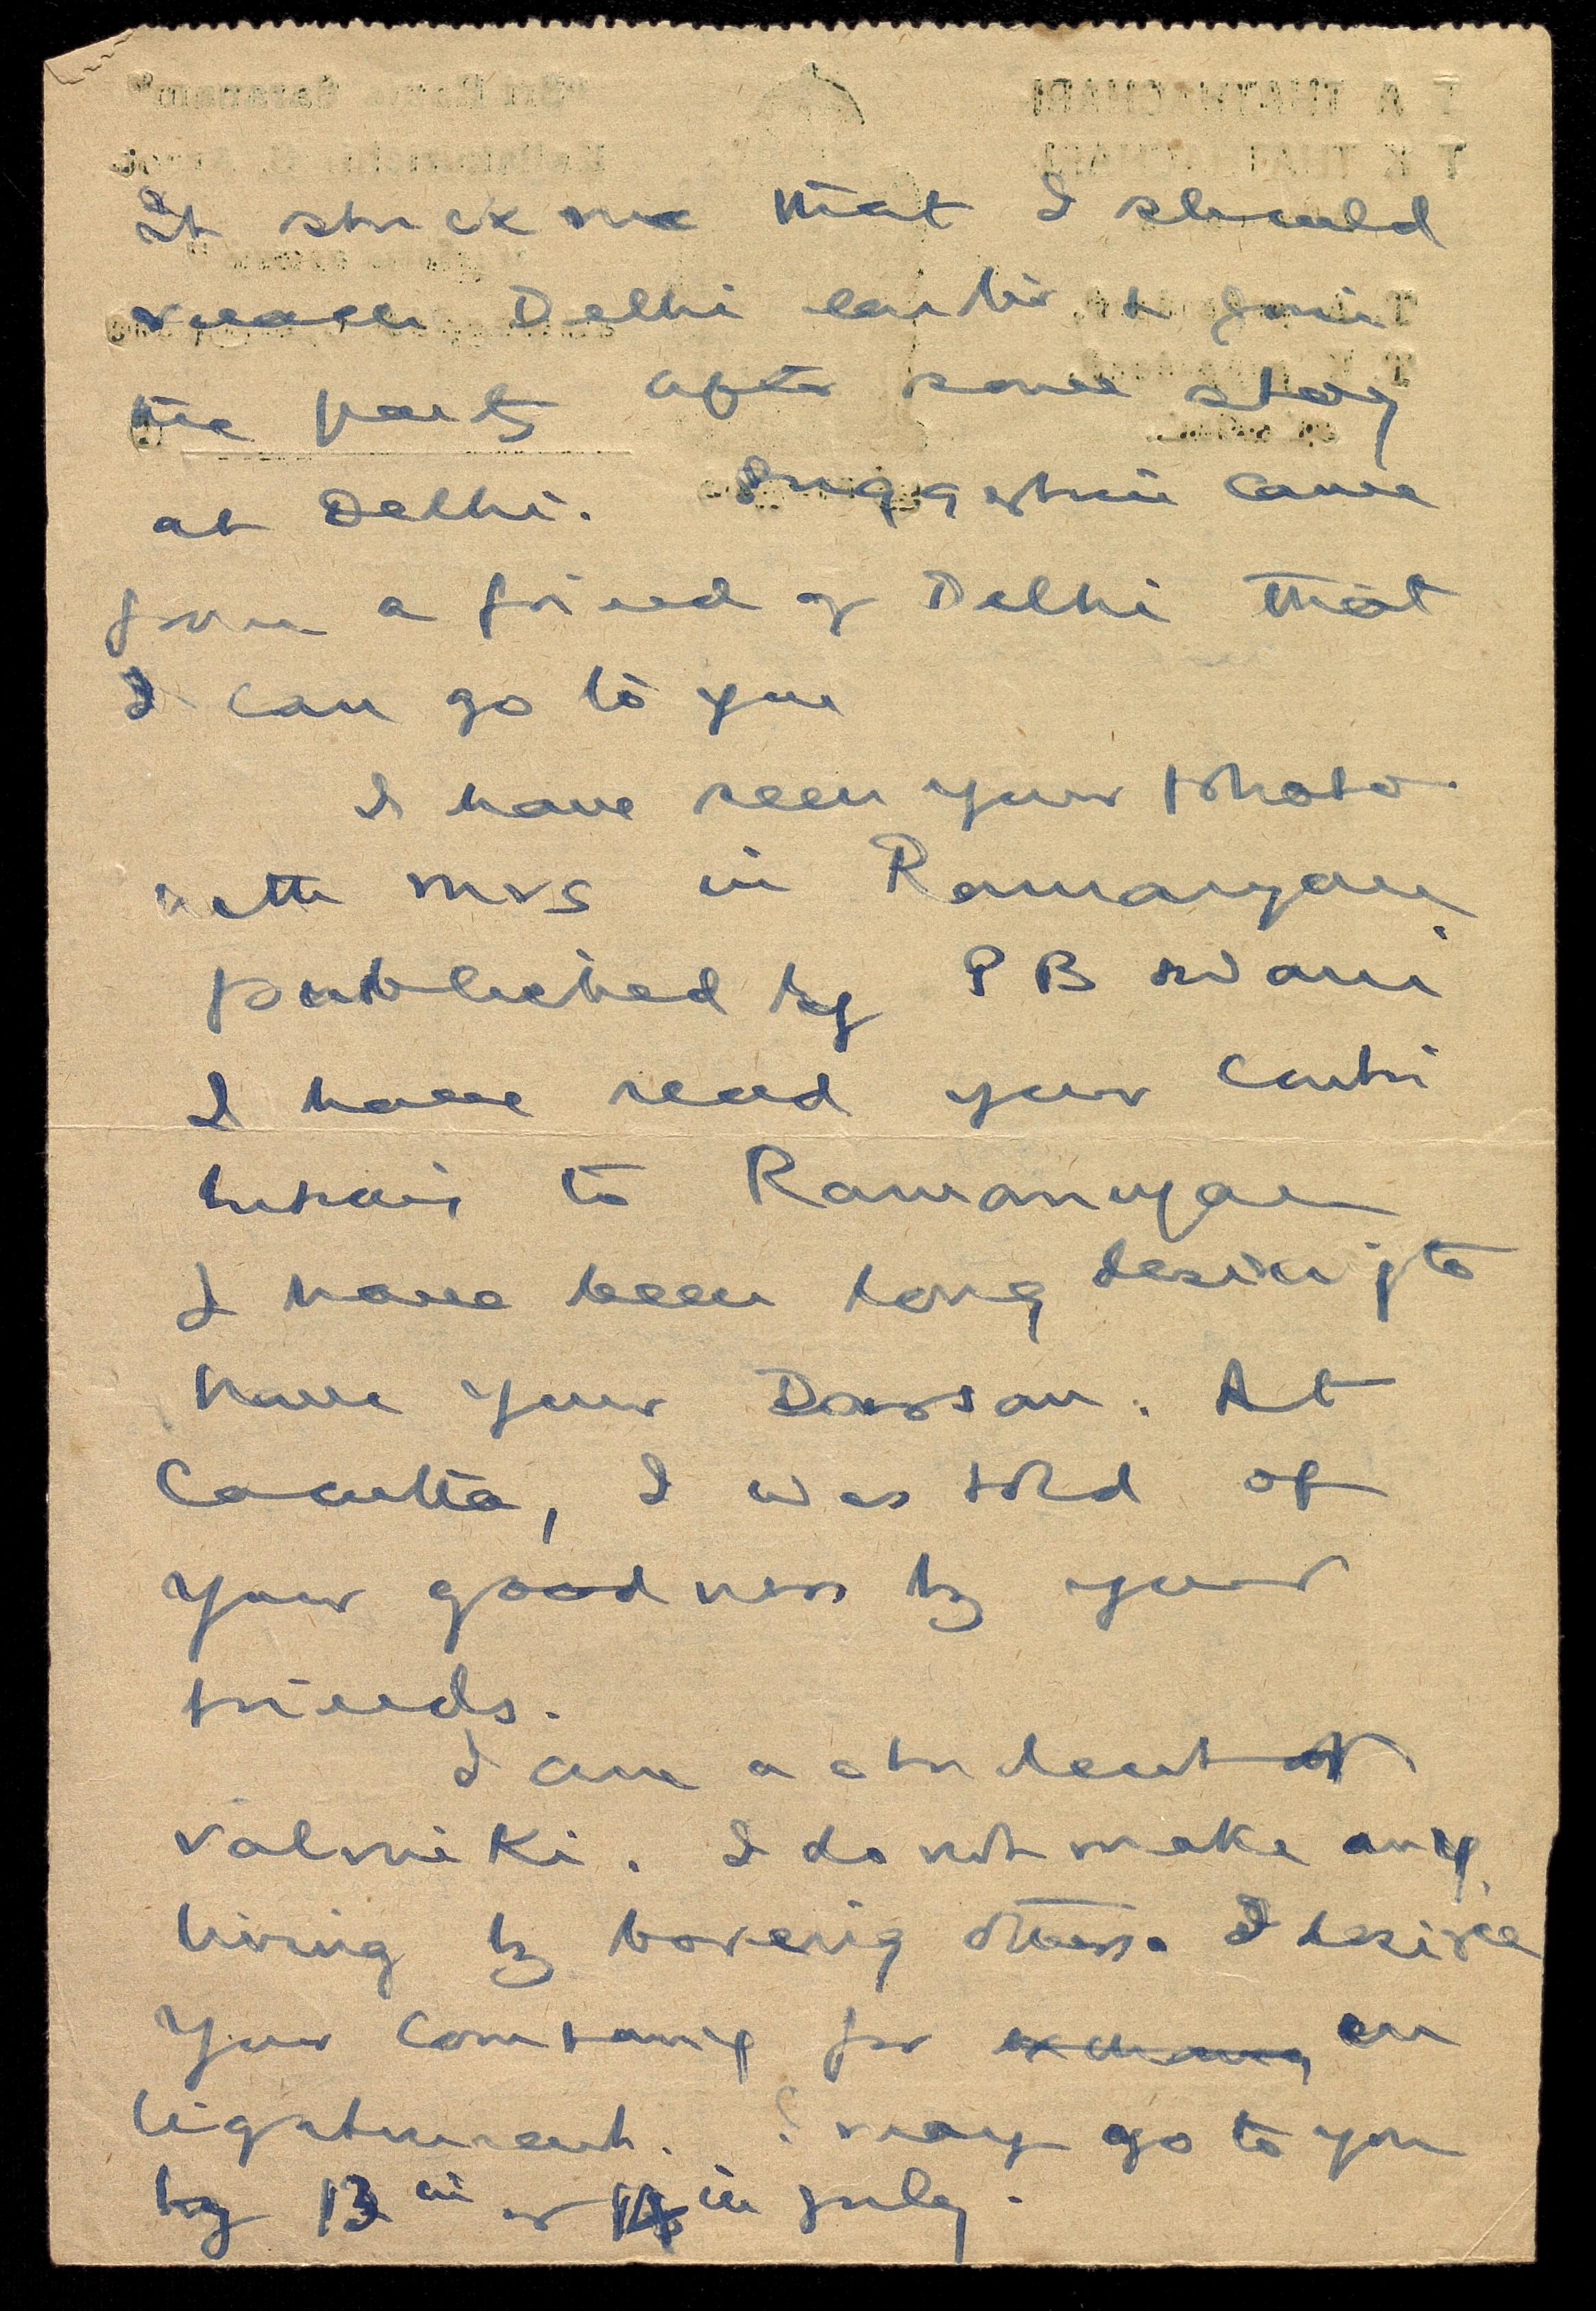 It struck me that I should
reach Delhi earlier to join
the party after some stay
at Delhi. Suggestion came
from a friend of Delhi that
I can go to you
I have seen your photo
with mrs in Ramanyam
published by P B swami
I have read your Contri
butions to Ramanyam
I have been long desiring to
have your Darsan. At
Cacutta, I was told of
your goodness by your
friends.
I am a student of
valmiki. I do not make any
living by boreing others. I desire
your company for en
lightment. I may go to you
by 13th or 14th July.